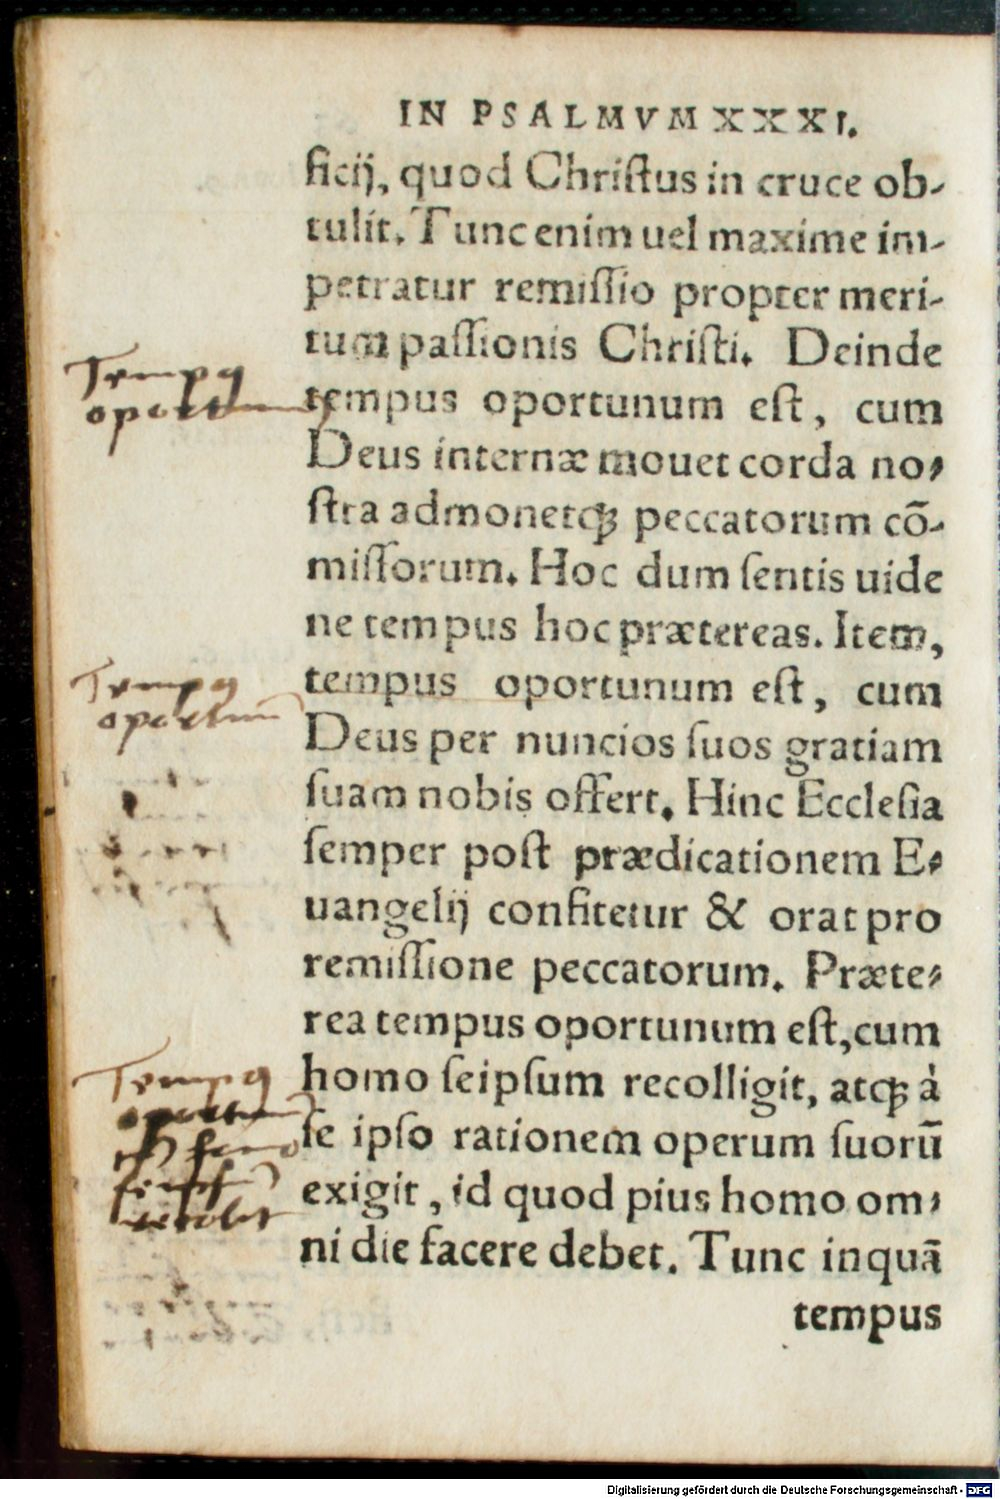 IN PSALMVM XXXI.
ficij, quod Christus in cruce ob-
tulit. Tunc enim uel maxime im-
petratur remissio propter meri-
tum passionis Christi. Deinde
Tempq
tempus oportunum est, cum
oportunum
Deus internæ mouet corda no-
stra admonetq́; peccatorum cō-
missorum. Hoc dum sentis uide
ne tempus hoc prætereas. Item,
Tempq
tempus oportunum est, cum
oportunū
Deus per nuncios suos gratiam
suam nobis offert. Hinc Ecclesia
semper post prædicationem E-
uangelij confitetur & orat pro
remissione peccatorum. Præte-
rea tempus oportunum est, cum
Tempq
homo seipsum recolligit, atq́; à
oportunū
se ipso rationem operum suorū
exigit, id quod pius homo om-
ni die facere debet. Tunc inquā
tempus
Digitalisierung gefördert durch die Deutsche Forschungsgemeinschaft - DFG